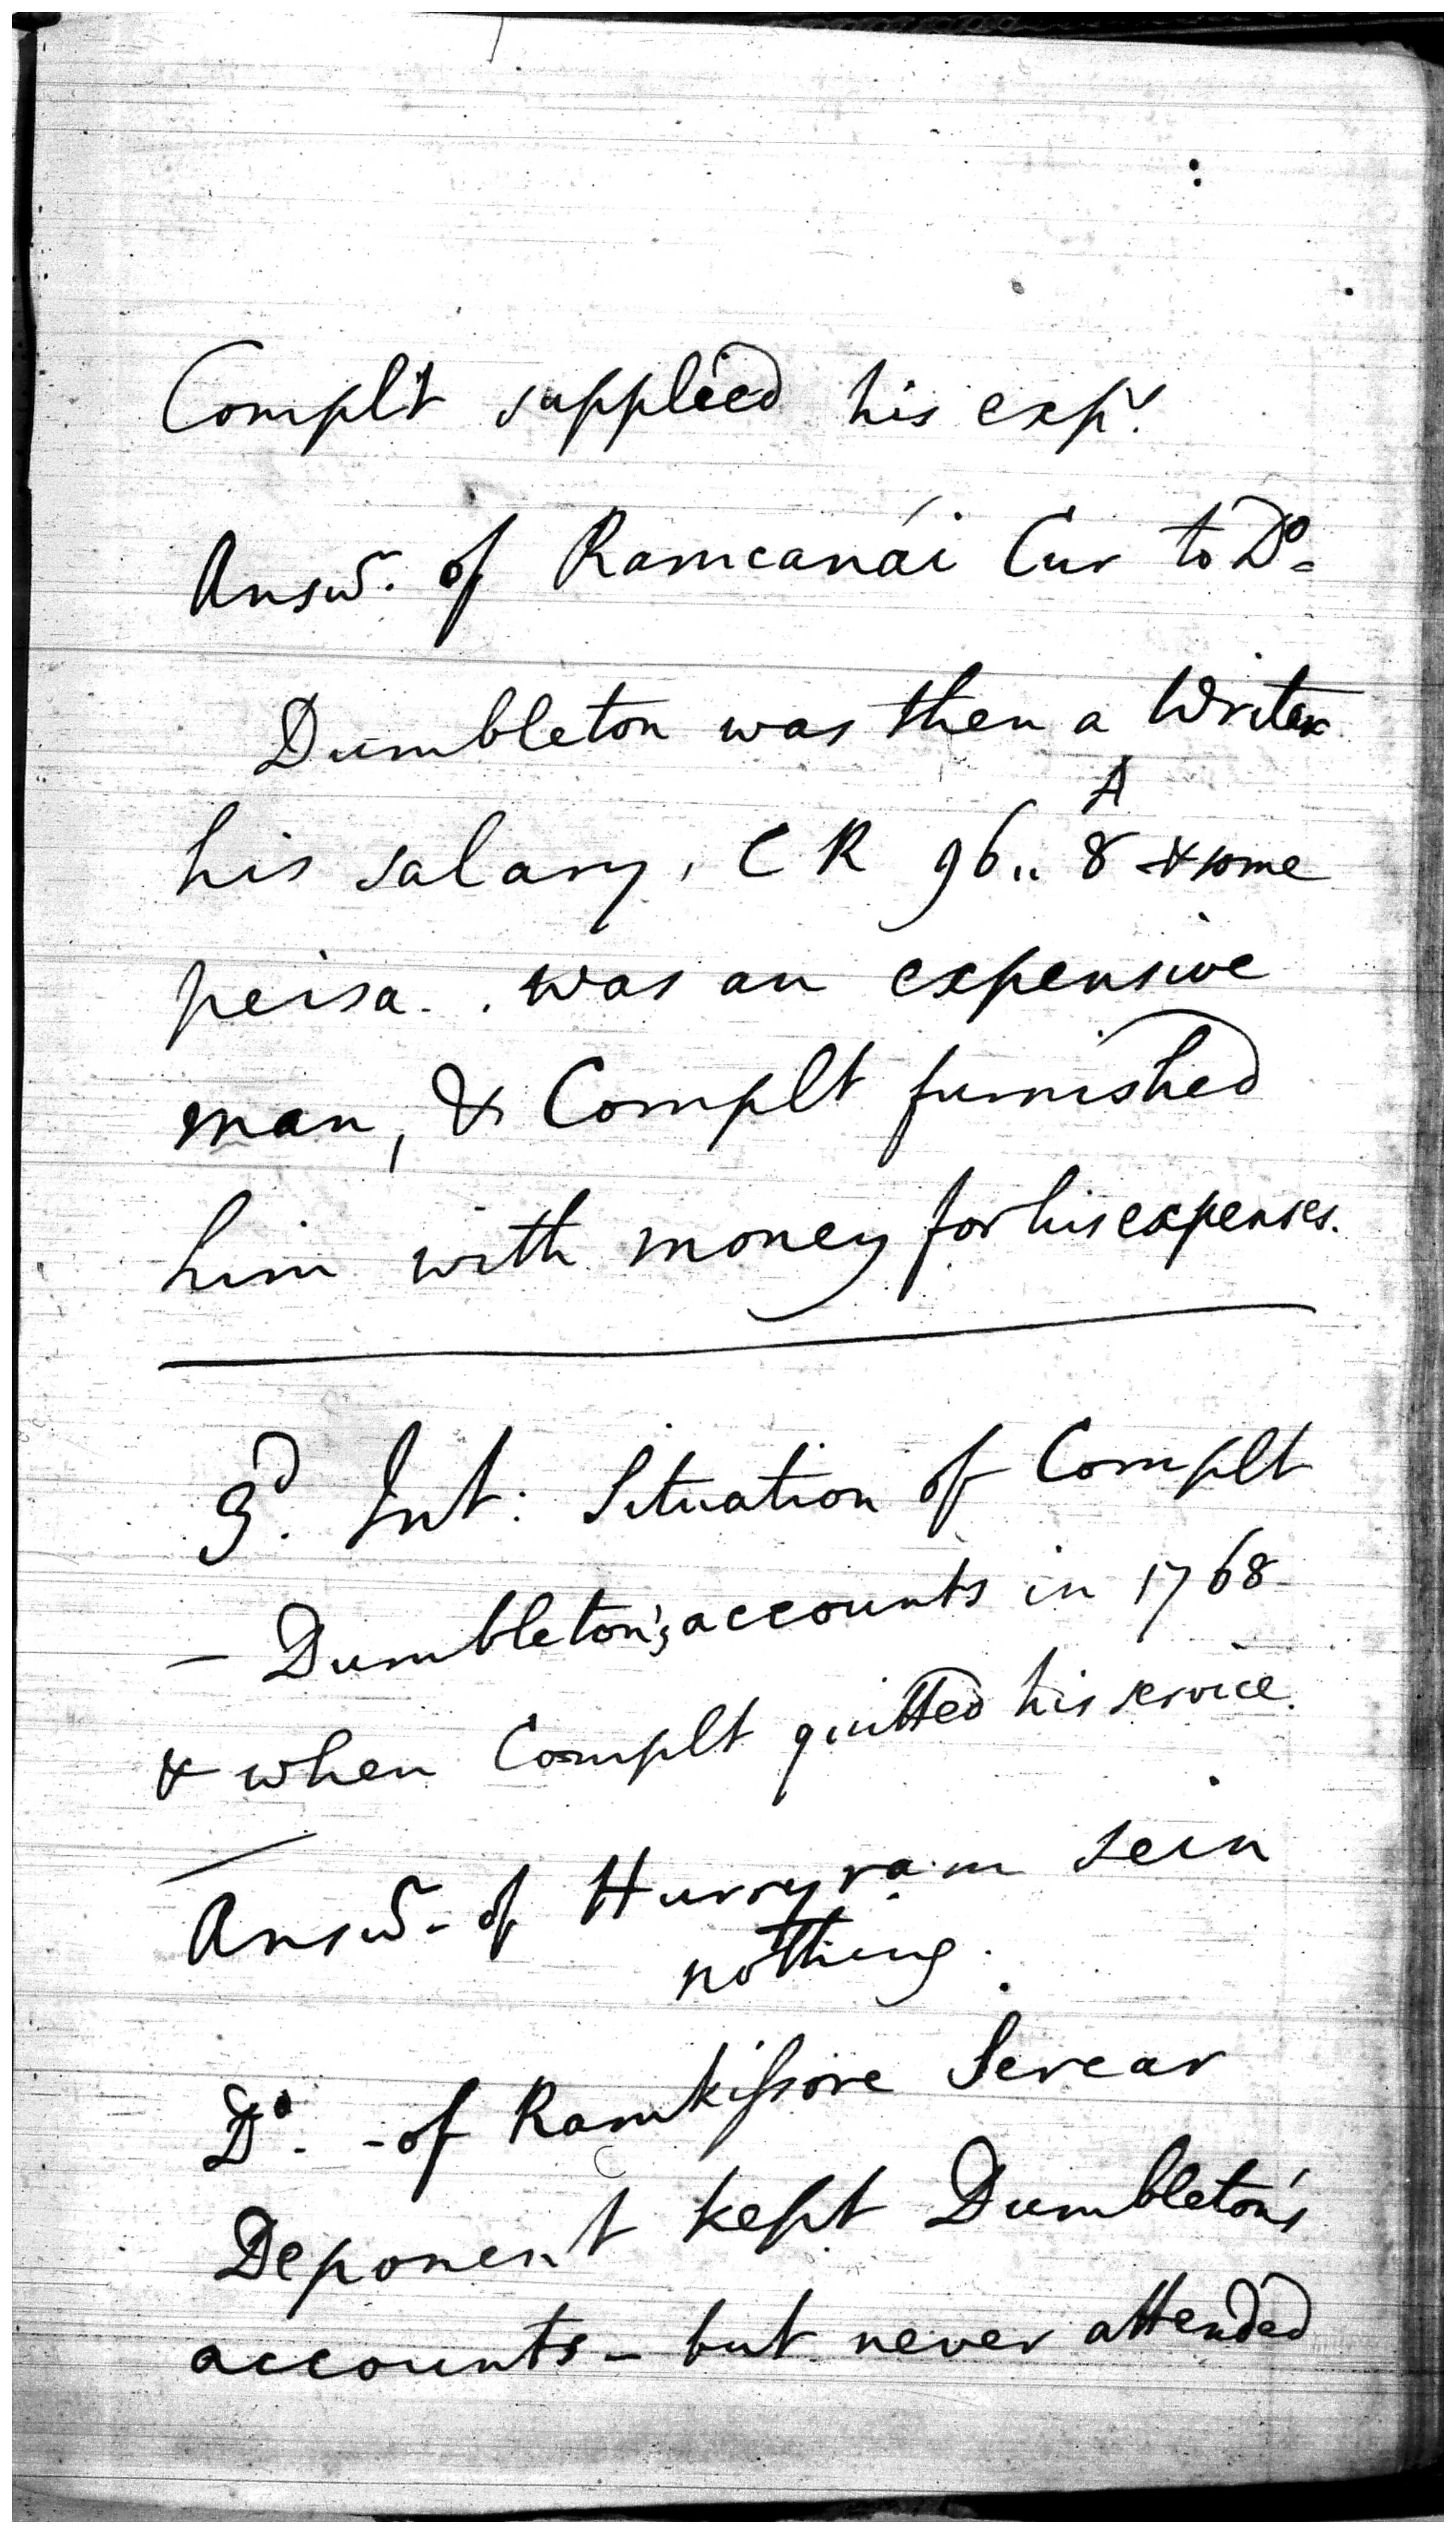 Complt supplied his exps.
Answr. of Ramcanái Cur to Do.
Dumbleton was then a Writer
his salary, C R 96.. 8 A & some
peisa.. was an expensive
man, & Complt furnished
him with money for his expenses.
3d. Int: Situation of Complt
– Dumbleton's accounts in 1768
& when Complt quitted his service.
Answr - of Hurryram Sein
nothing.
Do. - of Ramkissore Sercar
Deponent kept Dumbleton's
accounts – but never attended